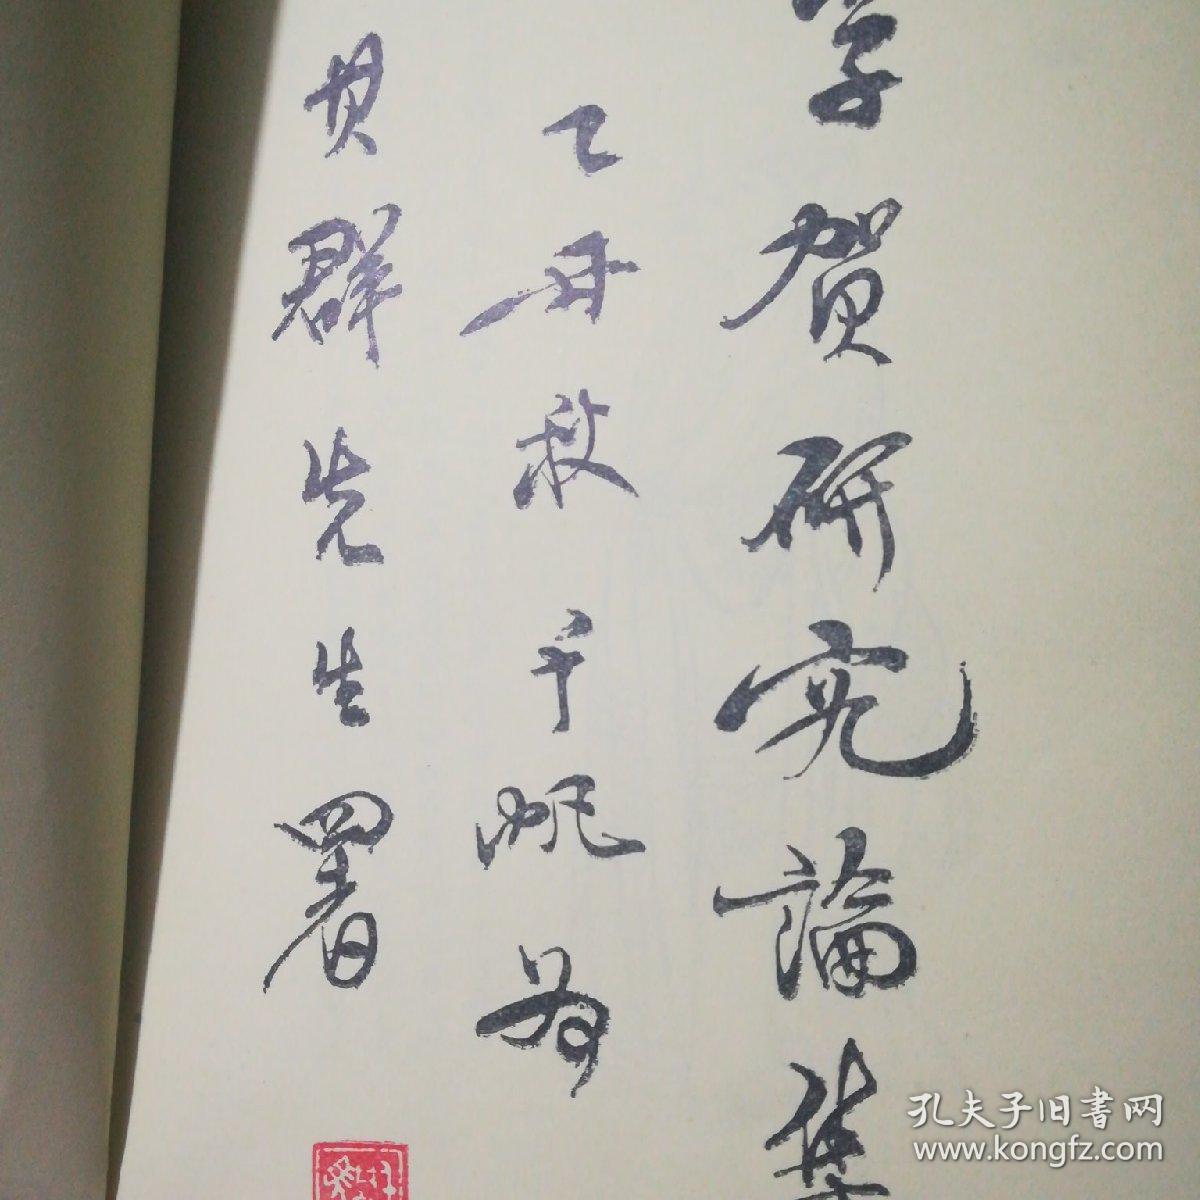 李賀研究論集
乙丑秋千帆為
其群先生署
孔夫子旧書网
www.kongfz.com